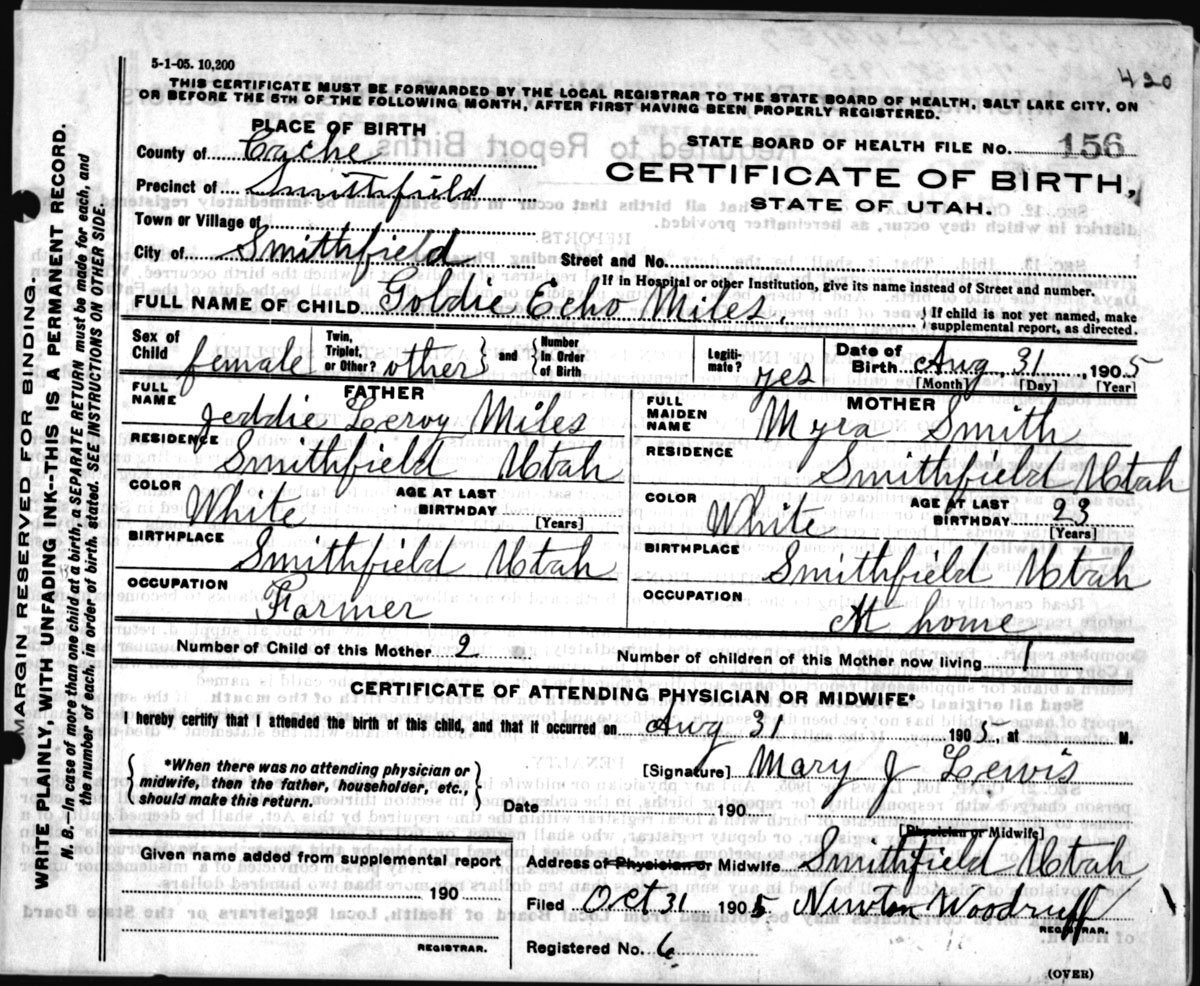 5-1-05. 10,200
420
THIS CERTIFICATE MUST BE FORWARDED BY THE LOCAL REGISTRAR TO THE STATE BOARD OF HEALTH, SALT LAKE CITY, ON
OR BEFORE THE 5TH OF THE FOLLOWING MONTH, AFTER FIRST HAVING BEEN PROPERLY REGISTERED.
PLACE OF BIRTH
STATE BOARD OF HEALTH FILE NO. 156
County of Cache
CERTIFICATE OF BIRTH,
Precinct of Smithfield
STATE OF UTAH.
Town or Village of
City of Smithfield Street and No.
If in Hospital or other Institution, give its name instead of Street and number.
FULL NAME OF CHILD Goldie Echo Miles. } If child is not yet named, make supplemental report, as directed.
Sex of Child female Twin, Triplet, or Other? other } and { Number In Order of Birth Legiti- mate? yes Date of Birth Aug. 31, 1905
[Month] [Day] [Year]
FATHER
FULL NAME Jeddie Leroy Miles
RESIDENCE Smithfield Utah
COLOR White AGE AT LAST BIRTHDAY [Years]
BIRTHPLACE Smithfield Utah
OCCUPATION Farmer
MOTHER
FULL MAIDEN NAME Myra Smith
RESIDENCE Smithfield Utah
COLOR White AGE AT LAST BIRTHDAY 23 [Years]
BIRTHPLACE Smithfield Utah
OCCUPATION At home
Number of Child of this Mother 2 Number of children of this Mother now living 1
CERTIFICATE OF ATTENDING PHYSICIAN OR MIDWIFE*
I hereby certify that I attended the birth of this child, and that it occurred on Aug 31 1905 at M.
{ *When there was no attending physician or
midwife, then the father, householder, etc.,
should make this return. }
[Signature] Mary J Lewis
Date 190
[Physician or Midwife]
Given name added from supplemental report
190
REGISTRAR.
Address of Physician or Midwife Smithfield Utah
Filed Oct 31 1905 Newton Woodruff
REGISTRAR.
Registered No. 6
(OVER)
MARGIN RESERVED FOR BINDING.
WRITE PLAINLY, WITH UNFADING INK--THIS IS A PERMANENT RECORD.
N. B.—In case of more than one child at a birth, a SEPARATE RETURN must be made for each, and
the number of each, in order of birth, stated. SEE INSTRUCTIONS ON OTHER SIDE.